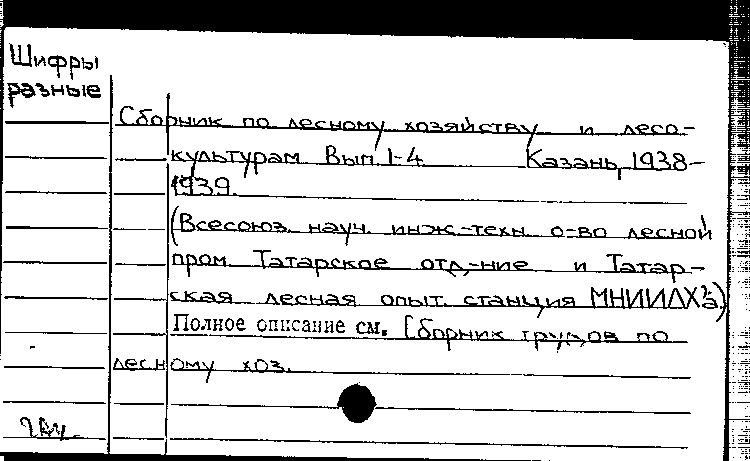 Шифры
разные
Сборник по лесному хозяйству и лесо-
культурам Вып. 1-4 Казань, 1938-
1939.
(Всесоюз. науч. инж.-техн. о-во лесной
пром. Татарское отд-ние и Татар-
ская лесная опыт. станция МНИИЛХ'а)
Полное описание см. Сборник трудов по
лесному хоз.